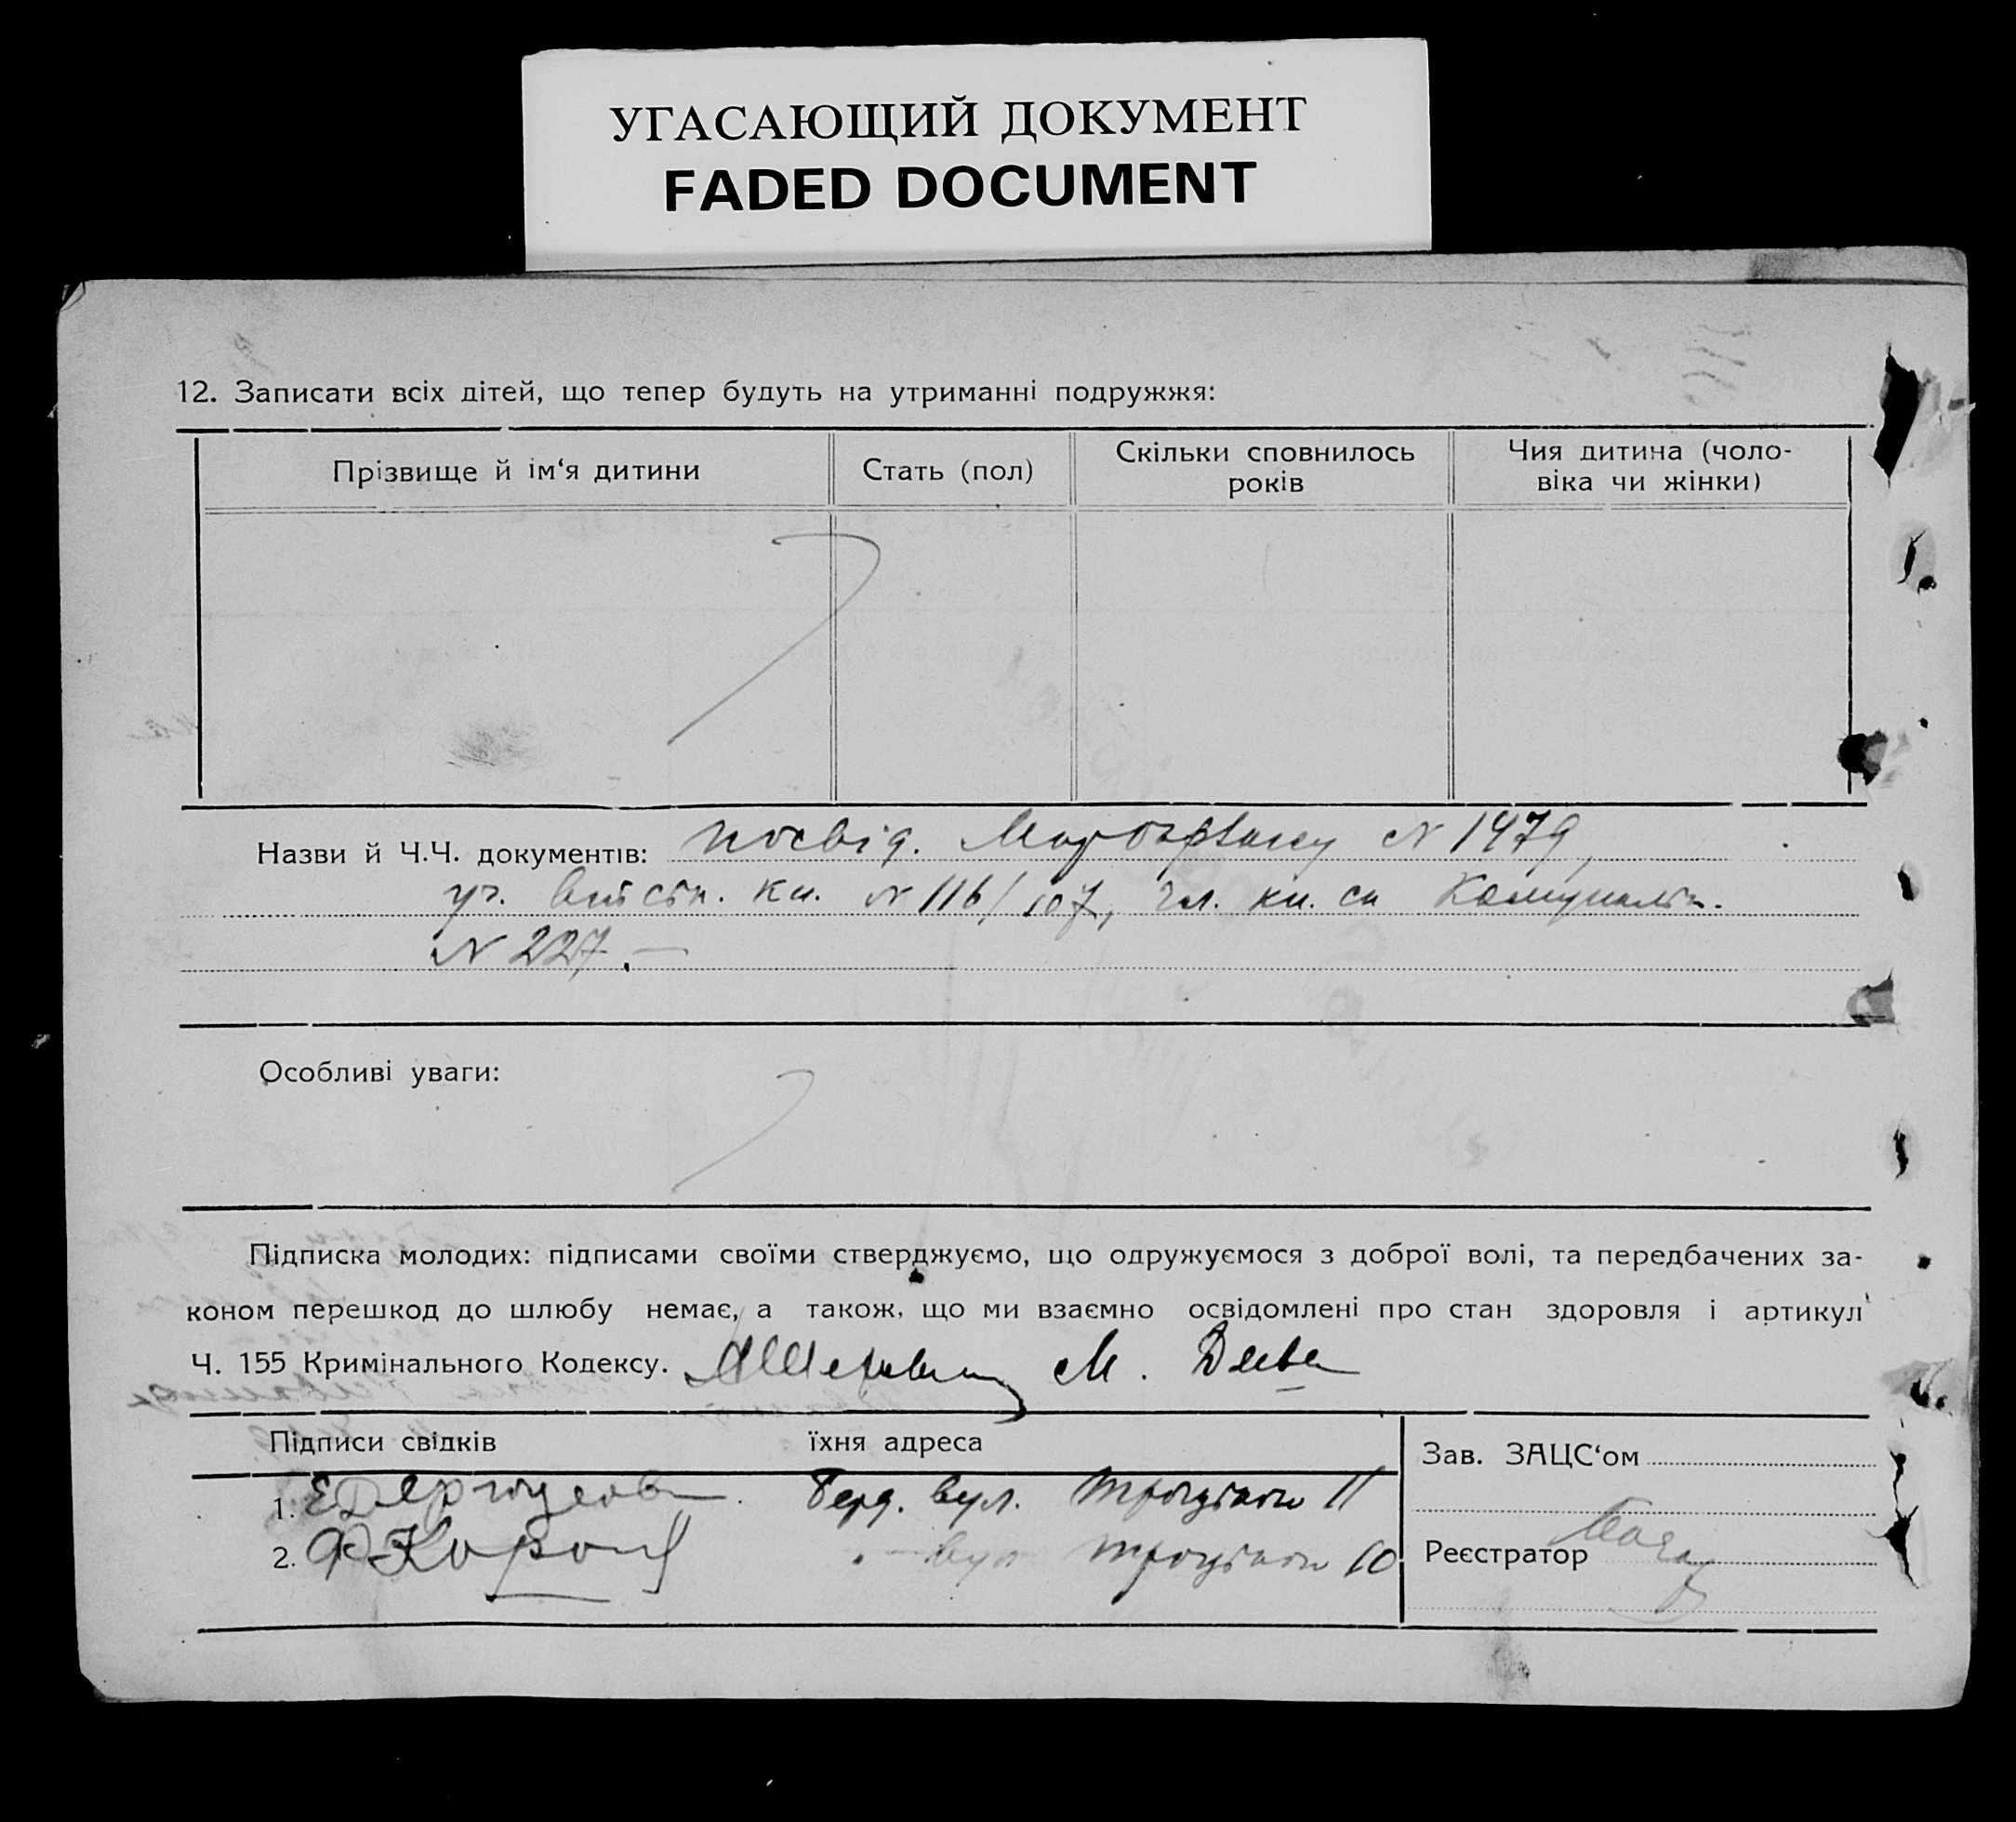 УГАСАЮЩИЙ ДОКУМЕНТ
FADED DOCUMENT
12. Записати всіх дітей, що тепер будуть на утриманні подружжя:
Прізвище й ім‘я дитини
Стать (пол)
Скільки сповнилось
років
Чия дитина (чоло-
віка чи жінки)
Назви й Ч.Ч. документів: посвід. N 1479,
уч. кн. N 116/107, чл. кн. сп
N 227.—
Особливі уваги:
Підписка молодих: підписами своїми стверджуємо, що одружуємося з доброї волі, та передбачених за-
коном перешкод до шлюбу немає, а також, що ми взаємно освідомлені про стан здоровля і артикул
Ч. 155 Кримінального Кодексу. М.
Підписи свідків
їхня адреса
Зав. ЗАЦС‘ом
1. Берд. вул. Троцького 11
2. вул Троцького 10
Реєстратор